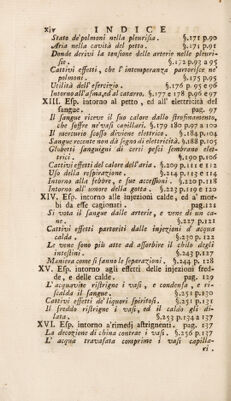 xiv INDICE
Stato de' polmoni nella pleurisia. §.171 p.90
Aria nella cavità del petto. §.171 p.91
Donde derivi la tensione delle arterie nelle pleuri-
sie. §.172 p.93 a 95
Cattivi effetti, che l' intemperanza partorisce ne'
polmoni. §.175 p.95
Utilità dell' esercizio. §.176 p.96
Intorno all'asma, ed al cataro. §.177 e 178 p.96 e 97
XIII. Esp. intorno al petto, ed all' elettricità del
sangue. pag. 97
Il sangue riceve il suo calore dallo strofinamento,
che soffre ne'vasi capillari. §.179 180 p.97 a 100
Il mercurio scosso diviene elettrico. §.184 p.104
Sangue recente non dà segno di elettricità. §.188 p.105
Globetti sanguigni di certi pesci sembrano elastici.
§.190 p.106
Cattivi effetti del calore dell'aria. §.209 p.111 e 112
Uso della respirazione. §.214 p.113 e 114
Intorno alla febbre, e sue accessioni. §.220 p.118
Intorno all' umore della gotta. §.223 p.119 e 120
XIV. Esp. intorno alle injezioni calde, ed a' mor-
bi da esse cagionati. pag.121
Si vota il sangue dalle arterie, e vene di un ca-
ne. §.227 p.121
Cattivi effetti partoriti dalle injezioni d' acqua
calda. §.230 p.
Le vene sono più atte ad assorbire il chilo degli
intestini. §.243 p.127
Maniera come si fanno le separazioni. §.244 p.
XV. Esp. intorno agli effetti delle injezioni fred-
de, e delle calde. pag. 130
L' acquavite ristrigne i vasi, e condensa, e ri-
scalda il sangue. §.250 p.131
Cattivi effetti de' liquori spiritosi. §.251 p.131
Il freddo ristrigne i vasi, ed il caldo gli di-
lata. §.253 p.134 a 137
XVI. Esp. intorno a'rimedj astrignenti. pag. 137
La decozione di china contrae i vasi. §.256 p.137
L' acqua travasata comprime i vasi capilla-
ri.